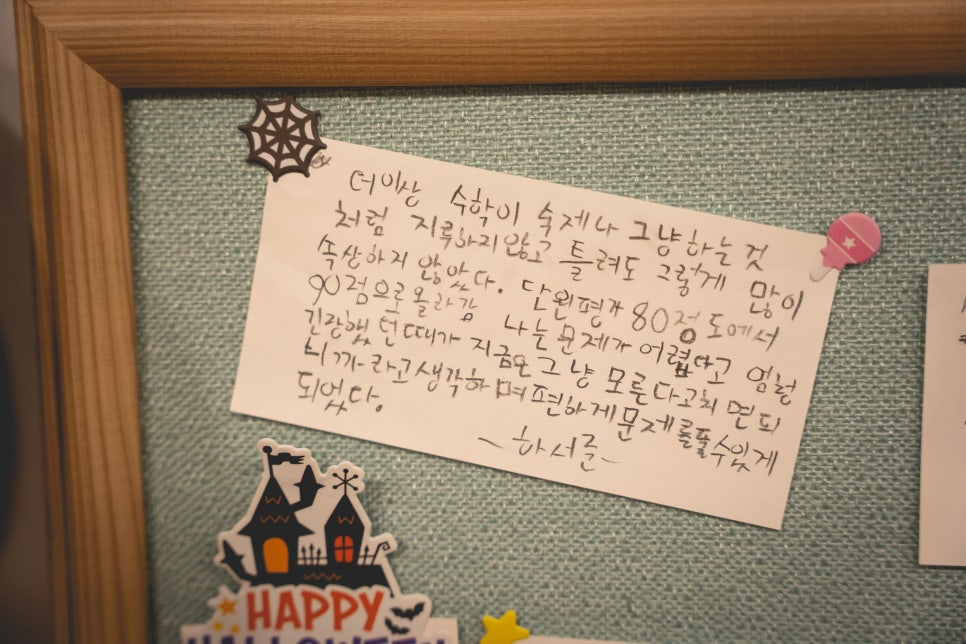 더이상 수학이 숙제나 그냥하는 것
처럼 지루하지않고 틀려도 그렇게 많이
속상하지 않았다. 단원평가 80정도에서
90점으로올라감 나는문제가 어렵다고 엄청
긴장했던때가 지금은그냥 모른다고치면되
니까라고생각하며편하게문제를풀수있게
되었다.
~하서준~
HAPPY
HALLOWEEN